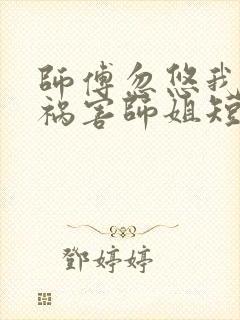 師傅忽悠我
禍害師姐短
鄧婷婷